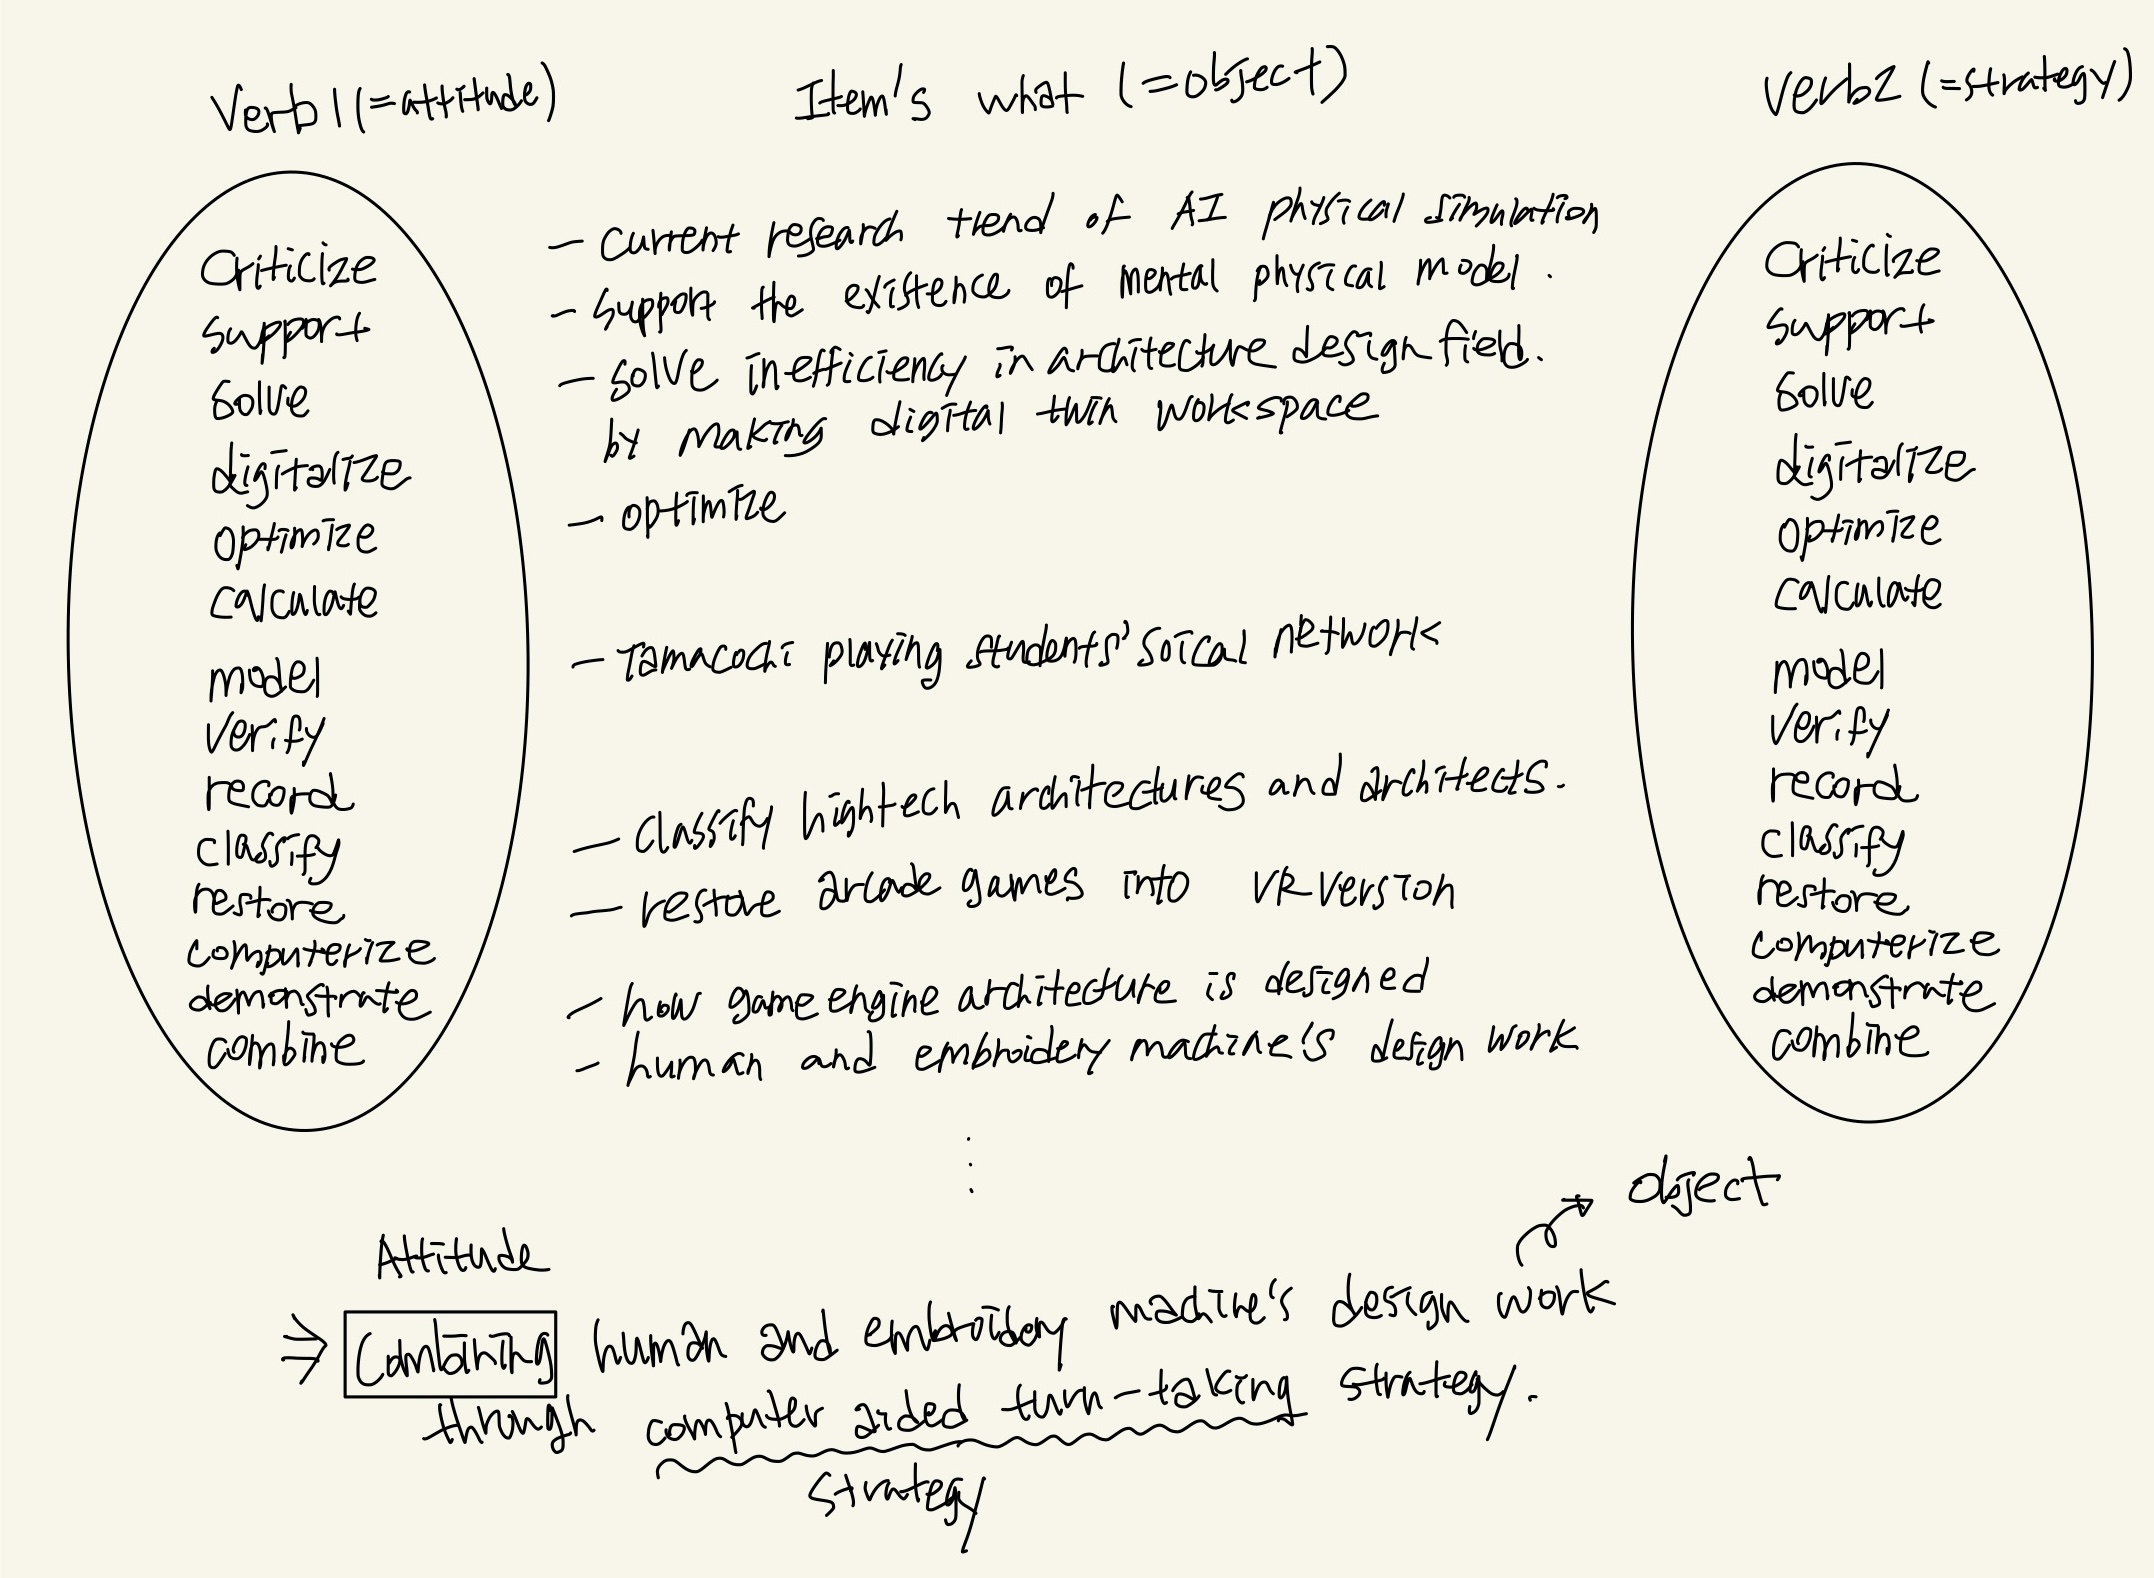 Verb1 (=attitude)
Item's what (=object)
Verb2 (=strategy)
Criticize
support
solve
digitalize
optimize
calculate
model
verify
record
classify
restore
computerize
demonstrate
combine
- current research trend of AI physical simulation
- support the existence of mental physical model.
- solve inefficiency in architecture design field.
by making digital twin workspace
- optimize
- Tamacochi playing students' soical network
- classify hightech architectures and architects.
- restore arcade games into VR version
- how game engine architecture is designed
- human and embroidery machine's design work
Criticize
support
solve
digitalize
optimize
calculate
model
verify
record
classify
restore
computerize
demonstrate
combine
object
Attitude
⇒ Combining human and embroidery machine's design work
through computer aided turn-taking strategy.
strategy